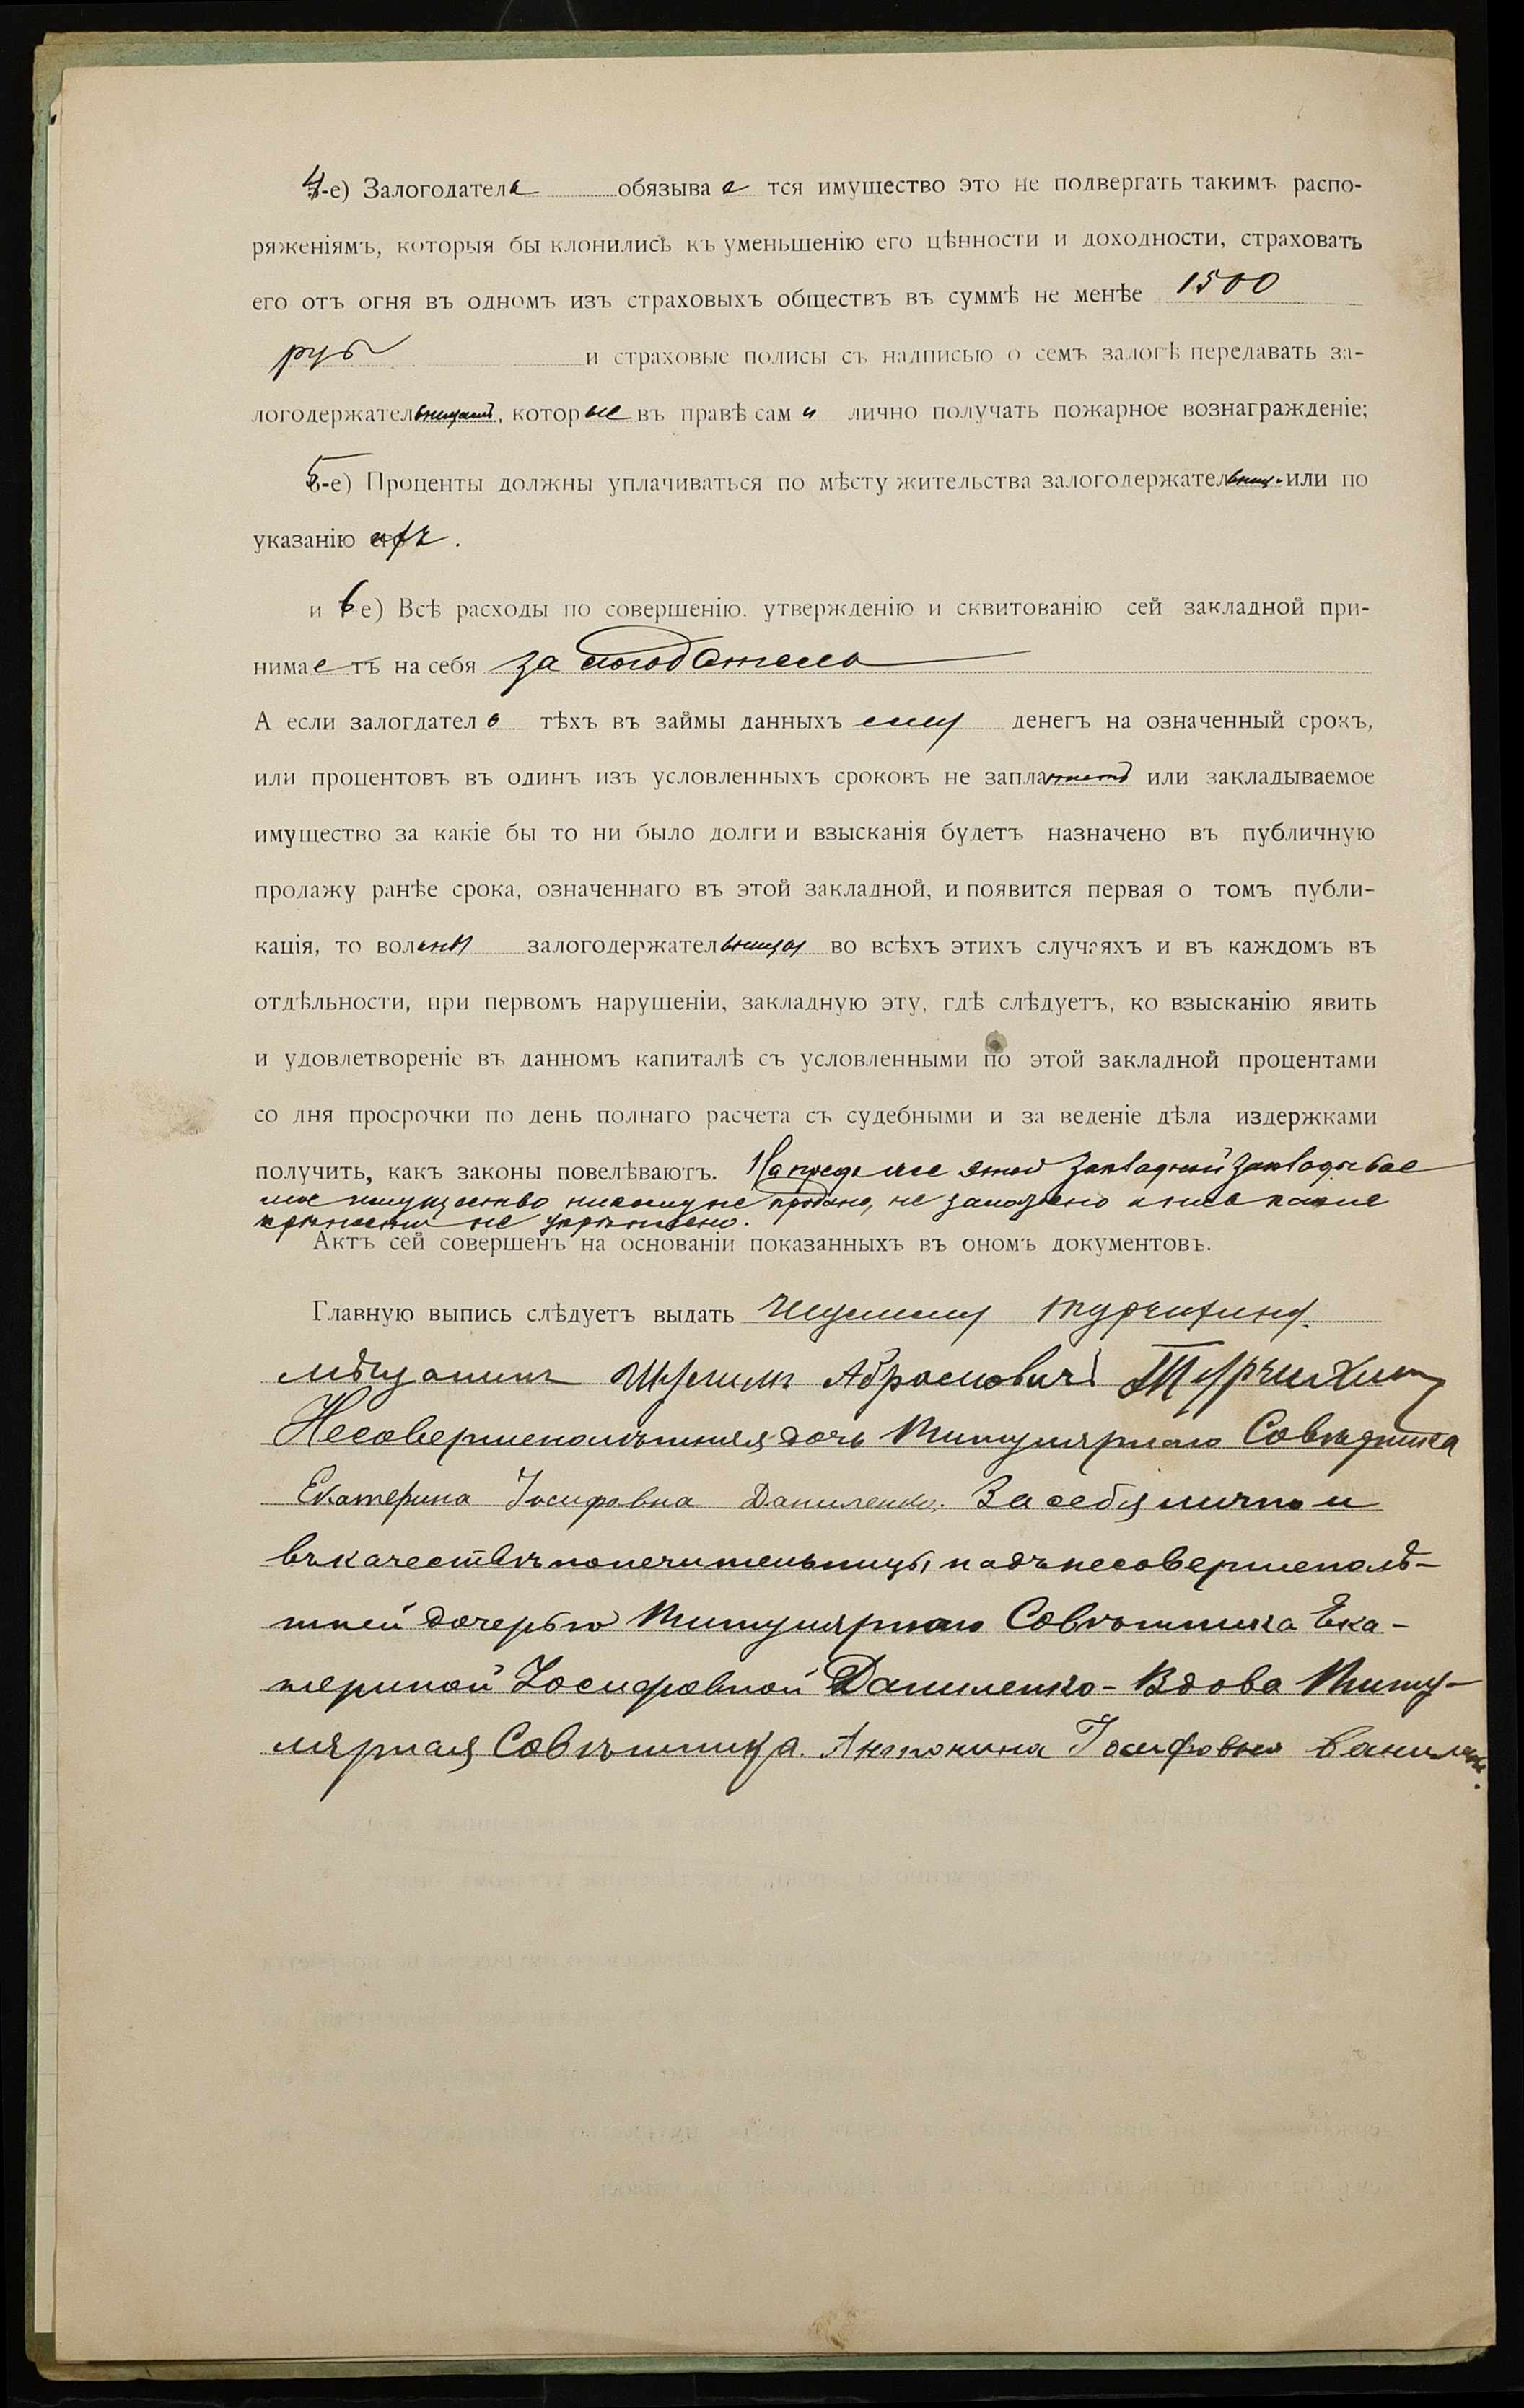 4-е) Залогодатель обязывается имущество это не подвергать такимъ распо-
ряженіямъ, которыя бы клонились къ уменьшенію его цѣнности и доходности, страховать
его отъ огня въ одномъ изъ страховыхъ обществъ въ суммѣ не менѣе 1500
руб и страховые полисы съ надписью о семъ залогѣ передавать за-
логодержательницамъ, которые въ правѣ сами лично получать пожарное вознагражденіе;
5-е) Проценты должны уплачиваться по мѣсту жительства залогодержательницъ или по
указанію ихъ.
и 6-е) Всѣ расходы по совершенію. утвержденію и сквитованію сей закладной при-
нимаетъ на себя залогодатель
А если залогдатель тѣхъ въ займы данныхъ ему денегъ на означенный срокъ,
или процентовъ въ одинъ изъ условленныхъ сроковъ не заплатитъ или закладываемое
имущество за какіе бы то ни было долги и взысканія будетъ назначено въ публичную
продажу ранѣе срока, означеннаго въ этой закладной, и появится первая о томъ публи-
кація, то вольны залогодержательницы во всѣхъ этихъ случаяхъ и въ каждомъ въ
отдѣльности, при первомъ нарушеніи, закладную эту, гдѣ слѣдуетъ, ко взысканію явить
и удовлетвореніе въ данномъ капиталѣ съ условленными по этой закладной процентами
со дня просрочки по день полнаго расчета съ судебными и за веденіе дѣла издержками
получить, какъ законы повелѣваютъ. Напредь же этой закладной закладывае
мое имущество никому не продано, не заложено и ни въ какие
крѣпости не укрѣплено.
Актъ сей совершенъ на основаніи показанныхъ въ ономъ документовъ.
Главную выпись слѣдуетъ выдать Турчихину.
мѣщанинъ Абрамовичъ Турчихин
Несовершеннолѣтняя дочь Титулярнаго Совѣтника
Екатерина Іосифовна Даниленко. За себя лично и
въ качествѣ попечительницы надъ несовершенолѣ-
тней дочерью Титулярнаго Совѣтника Ека-
териной Іосифовной Даниленко - Вдова Титу-
лярная Совѣтника. Антонина Іосифовна Даниленко.